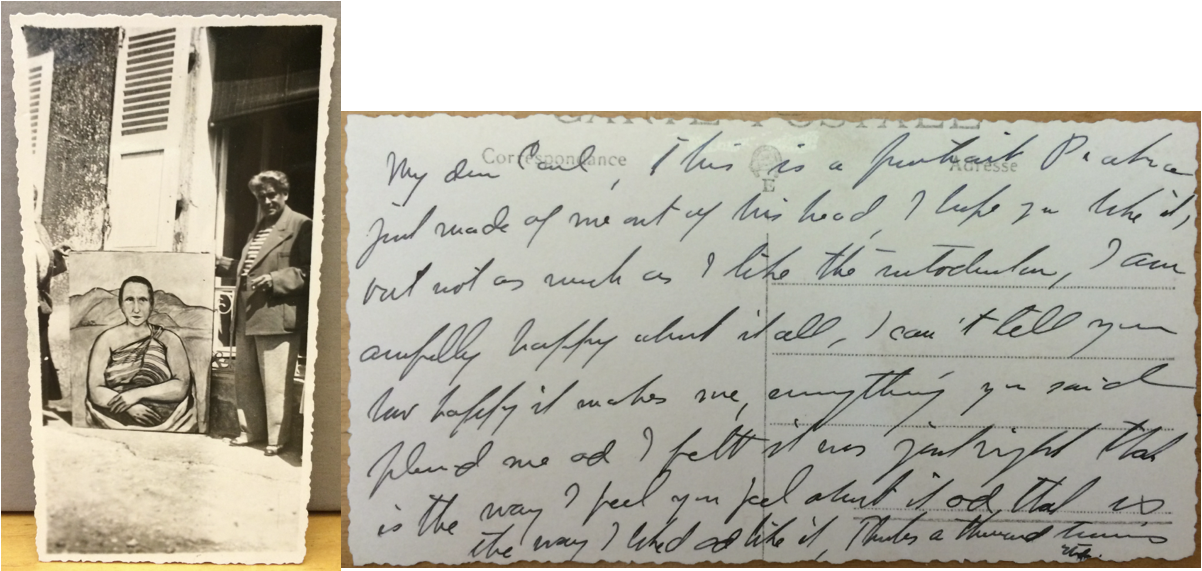 CARTE POSTALE
Correspondance
Adresse
E
My dear Carl, This is a portrait Picabia
just made of me out of his head, I hope you like it,
but not as much as I like the introduction, I am
awfully happy about it all, I can't tell you
how happy it makes me, everything you said
pleased me and I felt it was just right that
is the way I feel you feel about it and that is
the way I liked and like it, Thanks a thousand times